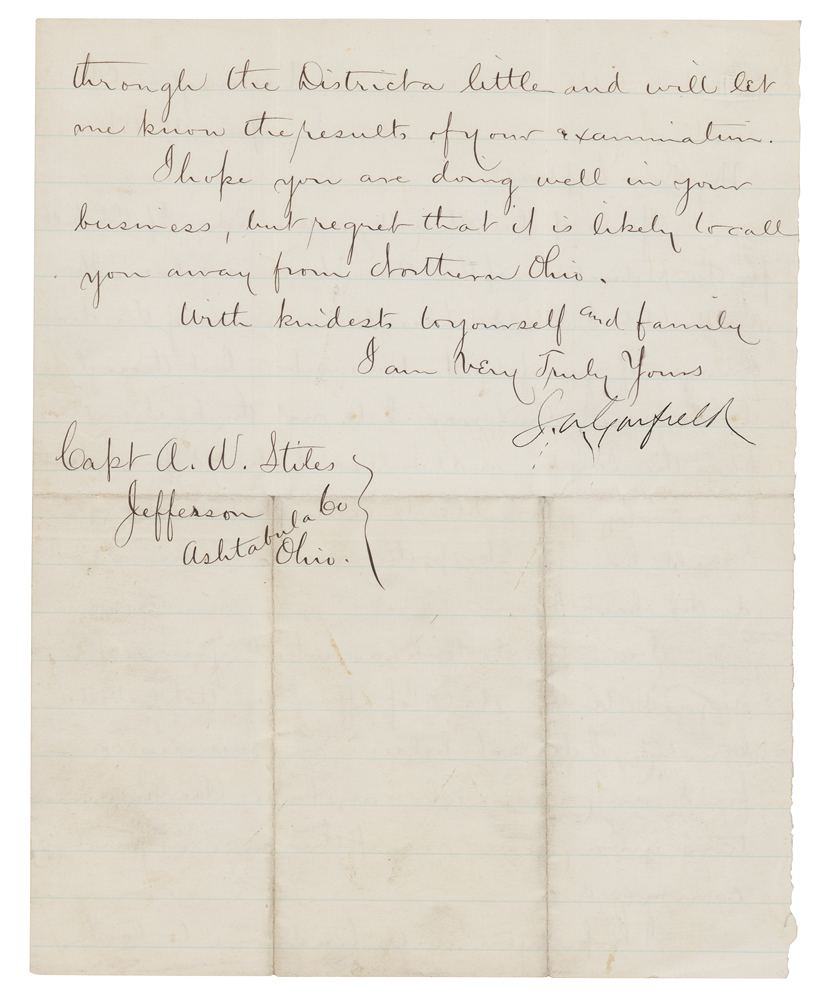 through the District a little and will let
me know the results of your examination.
I hope you are doing well in your
business, but regret that it is likely to call
you away from Northern Ohio.
With kindests to yourself and family
I am Very Truly Yours
J. A. Garfield
Capt A. W. Stiles
Jefferson
Ashtabula Co
Ohio.